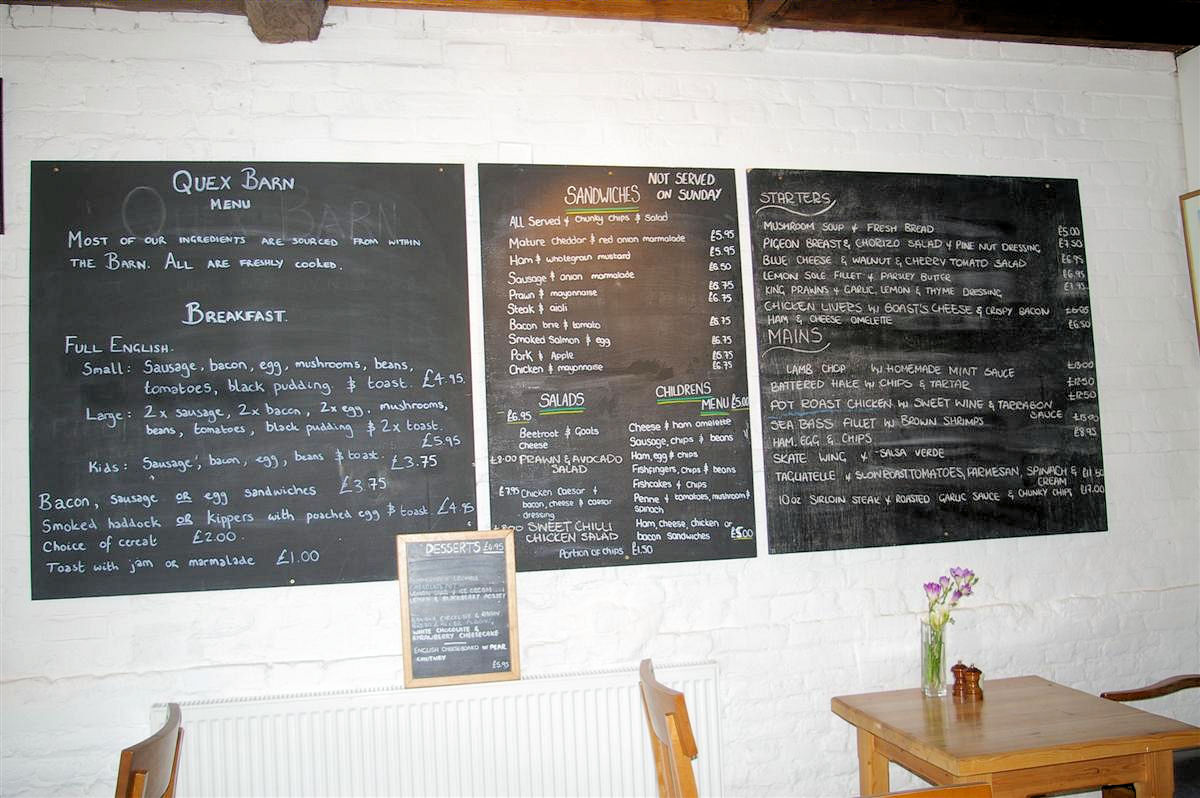 QUEX BARN
MENU
MOST OF OUR INGREDIENTS ARE SOURCED FROM WITHIN
THE BARN. ALL ARE FRESHLY COOKED.
BREAKFAST.
FULL ENGLISH.
Small: Sausage, bacon, egg, mushrooms, beans,
tomatoes, black pudding & toast. £4.95.
Large: 2x sausage, 2x bacon, 2x egg, mushrooms,
beans, tomatoes, black pudding & 2x toast.
£5.95
Kids: Sausage, bacon, egg, beans & toast. £3.75
Bacon, sausage OR egg sandwiches £3.75
Smoked haddock OR Kippers with poached egg & toast £4.95
Choice of cereal £2.00
Toast with jam or marmalade £1.00
SANDWICHES
NOT SERVED
ON SUNDAY
ALL Served & Chunky chips & Salad
Mature cheddar & red onion marmalade £5.95
Ham & wholegrain mustard £5.95
Sausage & onion marmalade £6.50
Prawn & mayonnaise £6.75
Steak & aioli £6.75
Bacon brie & tomato £5.75
Smoked Salmon & egg £6.75
Pork & Apple £5.75
Chicken & mayonnaise £6.75
SALADS
£6.95
Beetroot & Goats
cheese
£8.00 PRAWN & AVOCADO
SALAD
£7.95 Chicken Caesar &
bacon, cheese & caesar
dressing
£8.00 SWEET CHILLI
CHICKEN SALAD
CHILDRENS
MENU £5.00
Cheese & ham omelette
Sausage, chips & beans
Ham, egg & chips
Fishfingers, chips & beans
Fishcakes & chips
Penne & tomatoes, mushroom &
spinach
Ham, cheese, chicken or
bacon sandwiches £5.00
Portion of chips £1.50
STARTERS
MUSHROOM SOUP & FRESH BREAD £5.00
PIGEON BREAST & CHORIZO SALAD & PINE NUT DRESSING £7.50
BLUE CHEESE & WALNUT & CHERRY TOMATO SALAD £6.95
LEMON SOLE FILLET & PARSLEY BUTTER £6.95
KING PRAWNS & GARLIC, LEMON & THYME DRESSING £7.95
CHICKEN LIVERS W/ GOATS CHEESE & CRISPY BACON
HAM & CHEESE OMELETTE £6.50
MAINS
LAMB CHOP W/ HOMEMADE MINT SAUCE
BATTERED HAKE W/ CHIPS & TARTAR £12.50
POT ROAST CHICKEN W/ SWEET WINE & TARRAGON
SAUCE £12.50
SEA BASS FILLET W/ BROWN SHRIMPS
HAM, EGG & CHIPS £8.95
SKATE WING & SALSA VERDE
TAGLIATELLE & SLOW ROAST TOMATOES, PARMESAN, SPINACH &
CREAM £11.50
10oz SIRLOIN STEAK & ROASTED GARLIC SAUCE & CHUNKY CHIPS £17.00
DESSERTS £4.95
WHITE CHOCOLATE &
STRAWBERRY CHEESECAKE
ENGLISH CHEESEBOARD W PEAR
CHUTNEY
£5.95